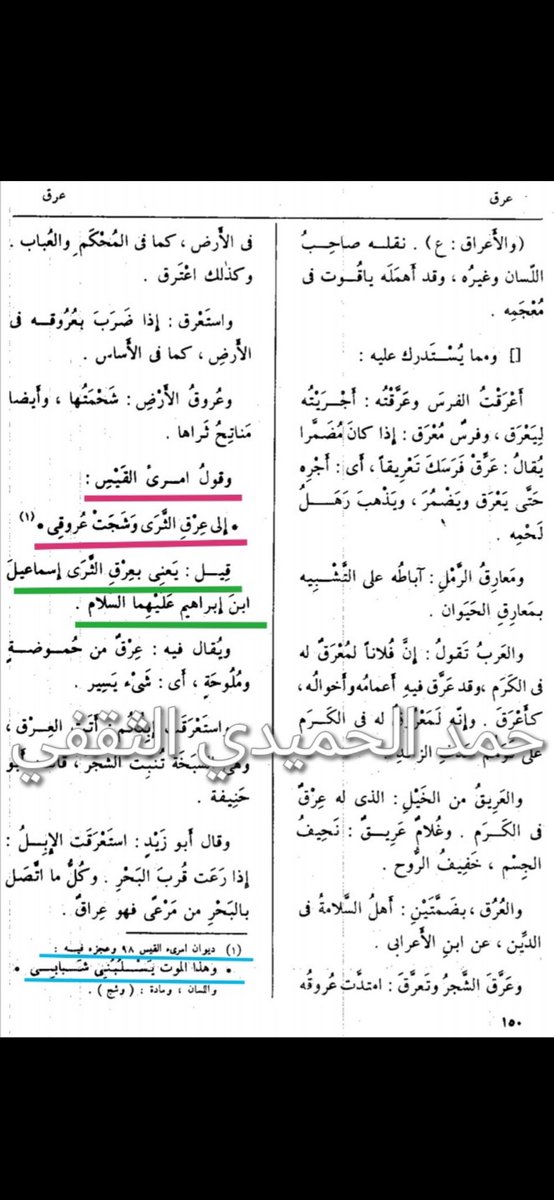 عرق
عرق
(والأَعراق : ع) . نقلـه صاحِبُ
اللّسان وغيرُه ، وقد أَهمَلَه ياقُوت فى
مُعْجَمِه .
[] ومما يُسْتَدرك عليه :
أَعْرَقْتُ الفرسَ وعَرَّقْتُه : أَجْرَيْتُه
لِيَعْرَق ، وفرسٌ مُعْرَق : إذا كانَ مُضَمَّرا
يُقالُ : عَرِّقْ فَرَسَك تَعْرِيقاً ، أَى : أَجْرِه
حَتَّى يَعْرَق ويَضْمُرَ ، ويَذْهبَ رَهَلُ
لَحْمِه .
ومَعارِقُ الرَّمْلِ : آباطُه على التَّشْبِيه
بمَعارِقِ الحَيَوان .
والعَربُ تَقولُ : إِنَّ فُلاناً لمُعْرَقٌ له
فى الكَرَم ، وقد عَرَّق فيهِ أَعمامُه وأَخوالُه ،
كأَعْرَقَ . وإِنَّه لَمَعْرُوقٌ له فى الكَرَم
على
والعَرِيقُ من الخَيْلِ : الذى له عِرْقٌ
فى الكَرَم . وغُلامٌ عَرِيـقٌ : نَحِيفُ
الجِسْم ، خَفِيفُ الرُّوح .
والعُرُق ، بضَمَّتَيْنِ : أَهلُ السَّلامةُ فى
الدِّين ، عن ابنِ الأَعرابى .
وعَرَّقَ الشَّجرُ وتَعرَّقَ : امتدَّت عُروقُه
١٥٠
فى الأَرض ، كما فى المُحْكَم والعُباب .
وكذلك اعْتَرق .
واستَعْرق : إذا ضَرَبَ بعُرُوقـه فى
الأَرضِ ، كما فى الأَساس .
وعُروقُ الأَرْضِ : شَحْمَتُها ، وأَيضا
مَناتِحُ ثَراها .
وقولُ امـرئ القَيْسِ :
• إلى عِرْقِ الثَّرَى وَشَجَتْ عُروقِى • (١)
قِيـل : يَعنِى بعِرْقِ الثَّرَى إسماعيلَ
ابنَ إبراهيم عَلَيْهِما السلام .
ويُقال فيه : عِرْقٌ من حُمـوضـةٍ
ومُلُوحَةٍ ، أى : شَىْء يَسِير .
واستَعْرَقَت إبِلُكُم : أَتَت العِرْق ،
وهى السَّبَخَة تُنبِت الشَّجَر ، قاله أَبو
حَنِيفة .
وقال أَبو زَيْدٍ : استَعْرَقَت الإبِـلُ :
إذا رَعَت قُربَ البَحْرِ . وكُلُّ ما اتَّصَل
بالبَحْرِ من مَرْعًى فهو عِراقٌ .
(١) ديوان امرىء القيس ٩٨ وعجزه فيـه :
• وَهذا الموت يَسْـلُبُنِي شَـبابِـي •
واللسان ، ومادة : ( وشج ) .
حمد الحميدي الثقفي